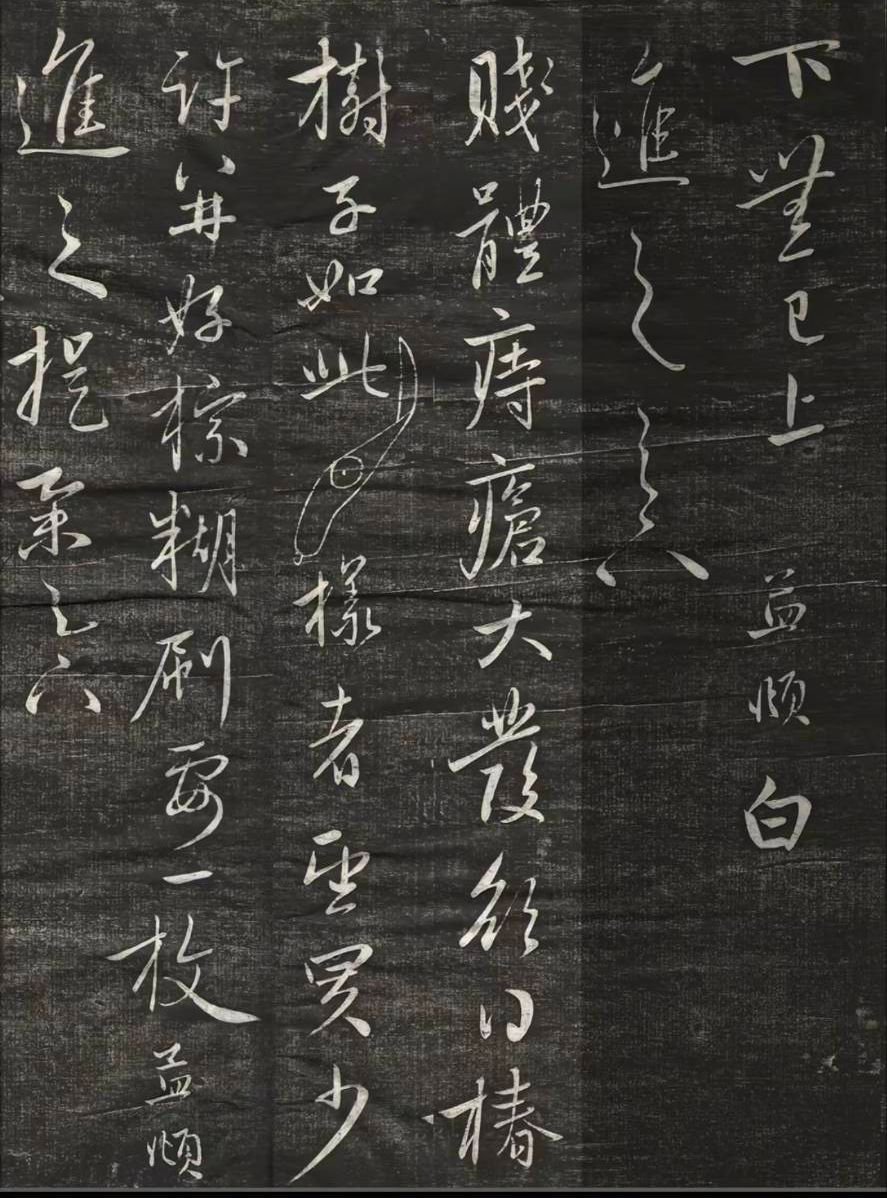 下無已上 孟頫白
進之
賤體痔瘡大發欲用椿
樹子如此樣者望買少
許并好棕糊刷要一枚 孟頫
進之提舉